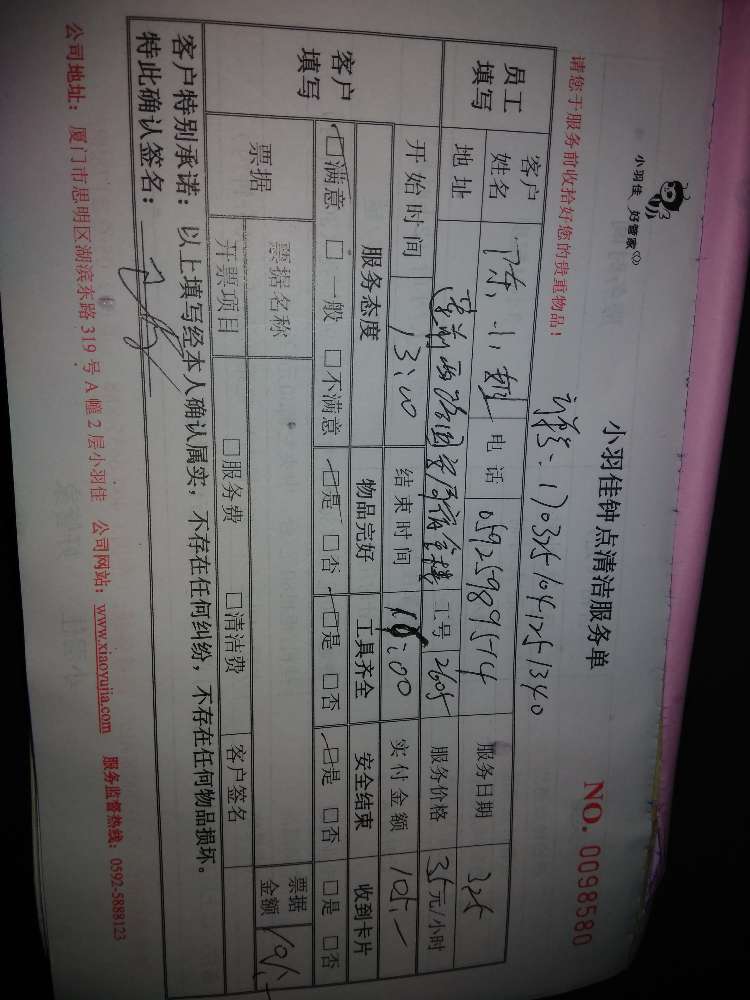 小羽佳 好管家
小羽佳钟点清洁服务单
NO. 0098580
请您于服务前收拾好您的贵重物品!
1703351041251340
员工填写
客户姓名 陈小姐 电话 05925989514 服务日期 325
地址 莲前西路 工号 2605 服务价格 35元/小时
客户填写
开始时间 13:00 结束时间 16:00 实付金额 105.-
服务态度 物品完好 工具齐全 安全结束 收到卡片
☑满意 □一般 □不满意 ☑是 □否 ☑是 □否 ☑是 □否 □是 □否
票据 票据名称 票据金额 105.-
开票项目 □服务费 □清洁费 客户签名
客户特别承诺:以上填写经本人确认属实,不存在任何纠纷,不存在任何物品损坏。
特此确认签名:
公司地址:厦门市思明区湖滨东路319号A幢2层小羽佳 公司网站:www.xiaoyujia.com 服务监督热线:0592-5888123